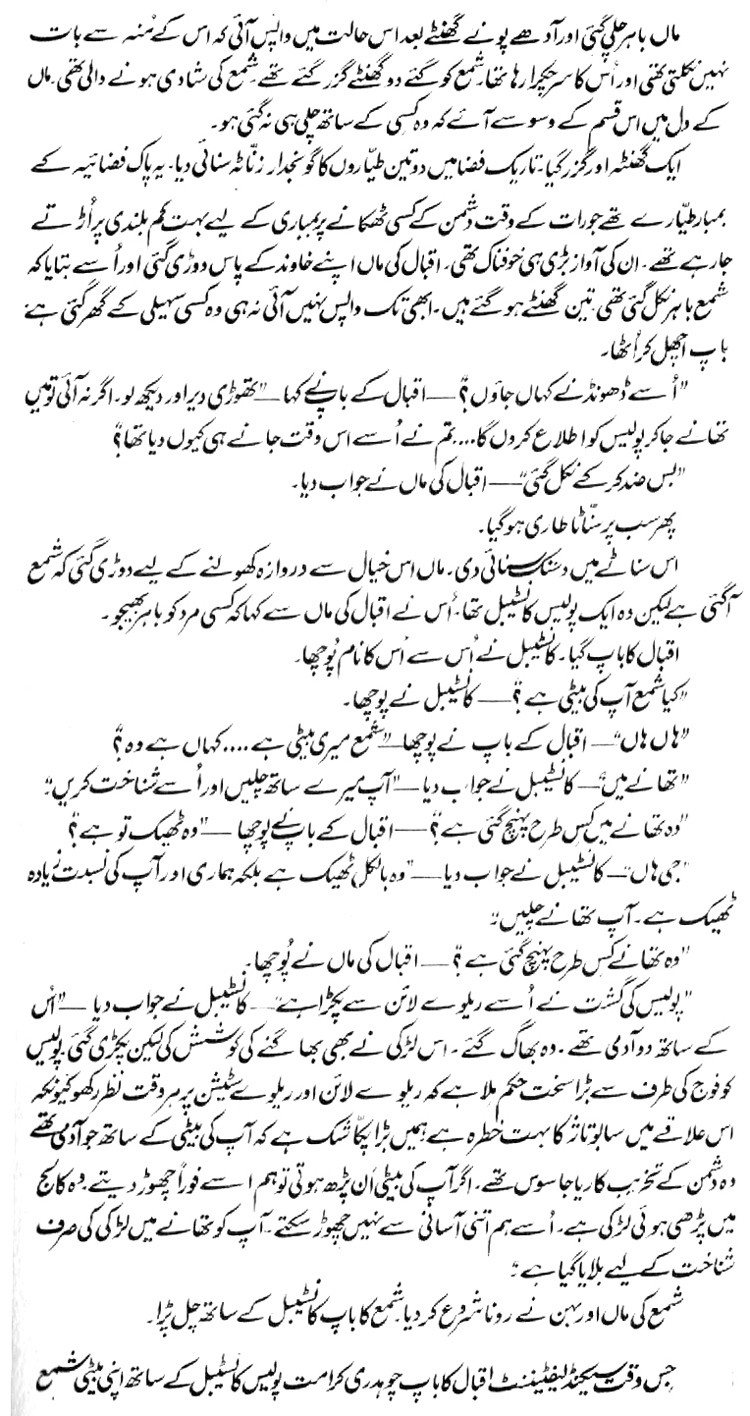 ماں باہر چلی گئی اور آدھے پونے گھنٹے بعد اس حالت میں واپس آئی کہ اس کے مُنہ سے بات
نہیں نکلتی تھی اور اُس کا سر چکرا رہا تھا۔ شمع کو گئے دو گھنٹے گزر گئے تھے۔ شمع کی شادی ہونے والی تھی۔ ماں
کے دل میں اس قسم کے وسوسے آئے کہ وہ کسی کے ساتھ چلی ہی نہ گئی ہو۔
ایک گھنٹہ اور گزر گیا۔ تاریک فضا میں دو تین طیّاروں کا گونجدار زنّاٹہ سنائی دیا۔ یہ پاک فضائیہ کے
بمبار طیّارے تھے جو رات کے وقت دشمن کے کسی ٹھکانے پر بمباری کے لیے بہت کم بلندی پر اُڑتے
جا رہے تھے۔ ان کی آواز بڑی ہی خوفناک تھی۔ اقبال کی ماں اپنے خاوند کے پاس دوڑی گئی اور اُسے بتایا کہ
شمع باہر نکل گئی تھی۔ تین گھنٹے ہو گئے ہیں۔ ابھی تک واپس نہیں آئی نہ ہی وہ کسی سہیلی کے گھر گئی ہے
باپ اچھل کر اُٹھا۔
"اُسے ڈھونڈنے کہاں جاؤں؟" — اقبال کے باپ نے کہا — "تھوڑی دیر اور دیکھ لو۔ اگر نہ آئی تو میں
تھانے جا کر پولیس کو اطلاع کروں گا.... تم نے اُسے اس وقت جانے ہی کیوں دیا تھا؟"
"بس ضد کر کے نکل گئی" — اقبال کی ماں نے جواب دیا۔
پھر سب پر سنّاٹا طاری ہو گیا۔
اس سناٹے میں دستک سنائی دی۔ ماں اس خیال سے دروازہ کھولنے کے لیے دوڑی گئی کہ شمع
آ گئی ہے لیکن وہ ایک پولیس کانسٹیبل تھا۔ اُس نے اقبال کی ماں سے کہا کہ کسی مرد کو باہر بھیجو۔
اقبال کا باپ گیا۔ کانسٹیبل نے اُس سے اُس کا نام پُوچھا۔
"کیا شمع آپ کی بیٹی ہے؟" — کانسٹیبل نے پوچھا۔
"ہاں ہاں" — اقبال کے باپ نے پوچھا — "شمع میری بیٹی ہے.... کہاں ہے وہ؟"
"تھانے میں" — کانسٹیبل نے جواب دیا — "آپ میرے ساتھ چلیں اور اُسے شناخت کریں"
"وہ تھانے میں کس طرح پہنچ گئی ہے؟" — اقبال کے باپ نے پوچھا — "وہ ٹھیک تو ہے؟"
"جی ہاں" — کانسٹیبل نے جواب دیا — "وہ بالکل ٹھیک ہے بلکہ ہماری اور آپ کی نسبت زیادہ
ٹھیک ہے۔ آپ تھانے چلیں"
"وہ تھانے کس طرح پہنچ گئی ہے؟" — اقبال کی ماں نے پُوچھا۔
"پولیس کی گشت نے اُسے ریلوے لائن سے پکڑا ہے" — کانسٹیبل نے جواب دیا — "اُس
کے ساتھ دو آدمی تھے۔ وہ بھاگ گئے۔ اس لڑکی نے بھی بھاگنے کی کوشش کی لیکن پکڑی گئی۔ پولیس
کو فوج کی طرف سے بڑا سخت حکم ملا ہے کہ ریلوے لائن اور ریلوے سٹیشن پر ہر وقت نظر رکھو کیونکہ
اس علاقے میں سابوتاژ کا بہت خطرہ ہے۔ ہمیں بڑا پکّا شک ہے کہ آپ کی بیٹی کے ساتھ جو آدمی تھے
وہ دشمن کے تخریب کار یا جاسوس تھے۔ اگر آپ کی بیٹی اَن پڑھ ہوتی تو ہم اسے فوراً چھوڑ دیتے۔ وہ کالج
میں پڑھی ہوئی لڑکی ہے۔ اُسے ہم اتنی آسانی سے نہیں چھوڑ سکتے۔ آپ کو تھانے میں لڑکی کی صرف
شناخت کے لیے بلایا گیا ہے"
شمع کی ماں اور بہن نے رونا شروع کر دیا۔ شمع کا باپ کانسٹیبل کے ساتھ چل پڑا۔
جس وقت سیکنڈ لیفٹیننٹ اقبال کا باپ چوہدری کرامت پولیس کانسٹیبل کے ساتھ اپنی بیٹی شمع